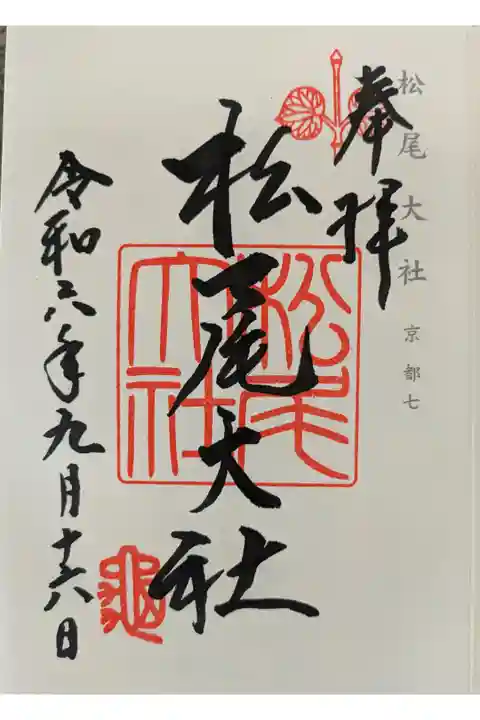 松尾大社 京都七
奉拝
松尾大社
松尾
大社
令和六年九月十六日